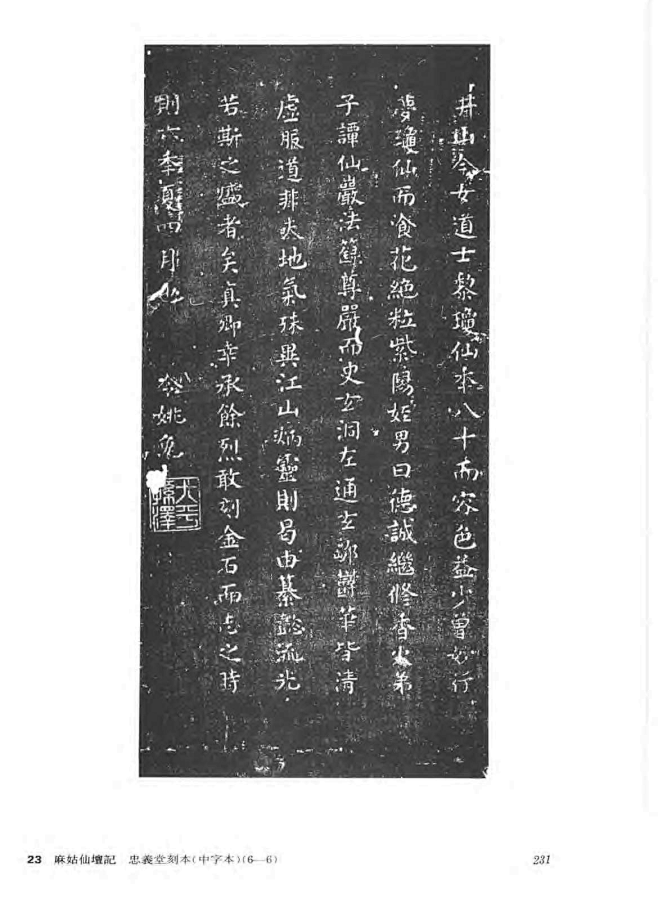 井山今女道士黎瓊仙年八十而容色益少曾妙行
夢瓊仙而飡花絶粒紫陽姪男曰德誠繼修香火弟
子譚仙巖法籙尊嚴而史玄洞左通玄鄒鬱華皆清
虛服道非夫地氣殊異江山炳靈則曷由纂懿流光
若斯之盛者矣真卿幸承餘烈敢刻金石而志之時
則六年夏四月也
姚
23 麻姑仙壇記 忠義堂刻本(中字本)(6—6)
231